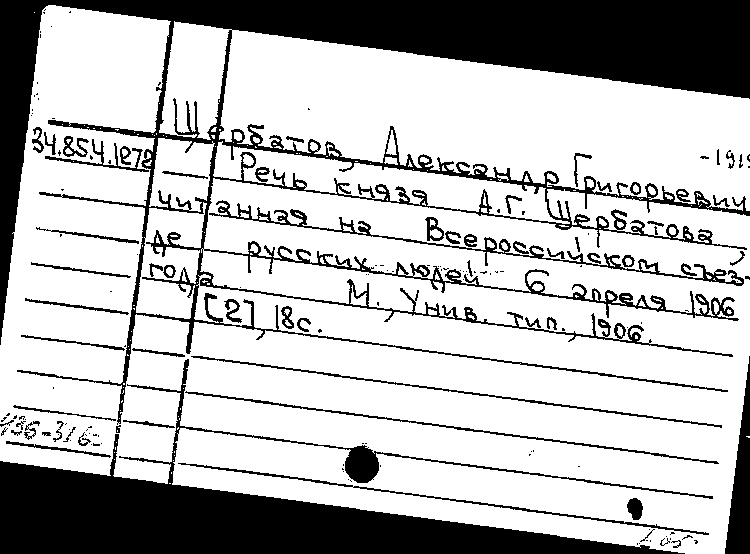 Щербатов, Александр Григорьевич
-1915
34.85.4.1272
Речь князя А.Г. Щербатова,
читанная на Всероссийском съез-
де русских людей 6 апреля 1906
года. М., Унив. тип., 1906.
[2], 18с.
436-316